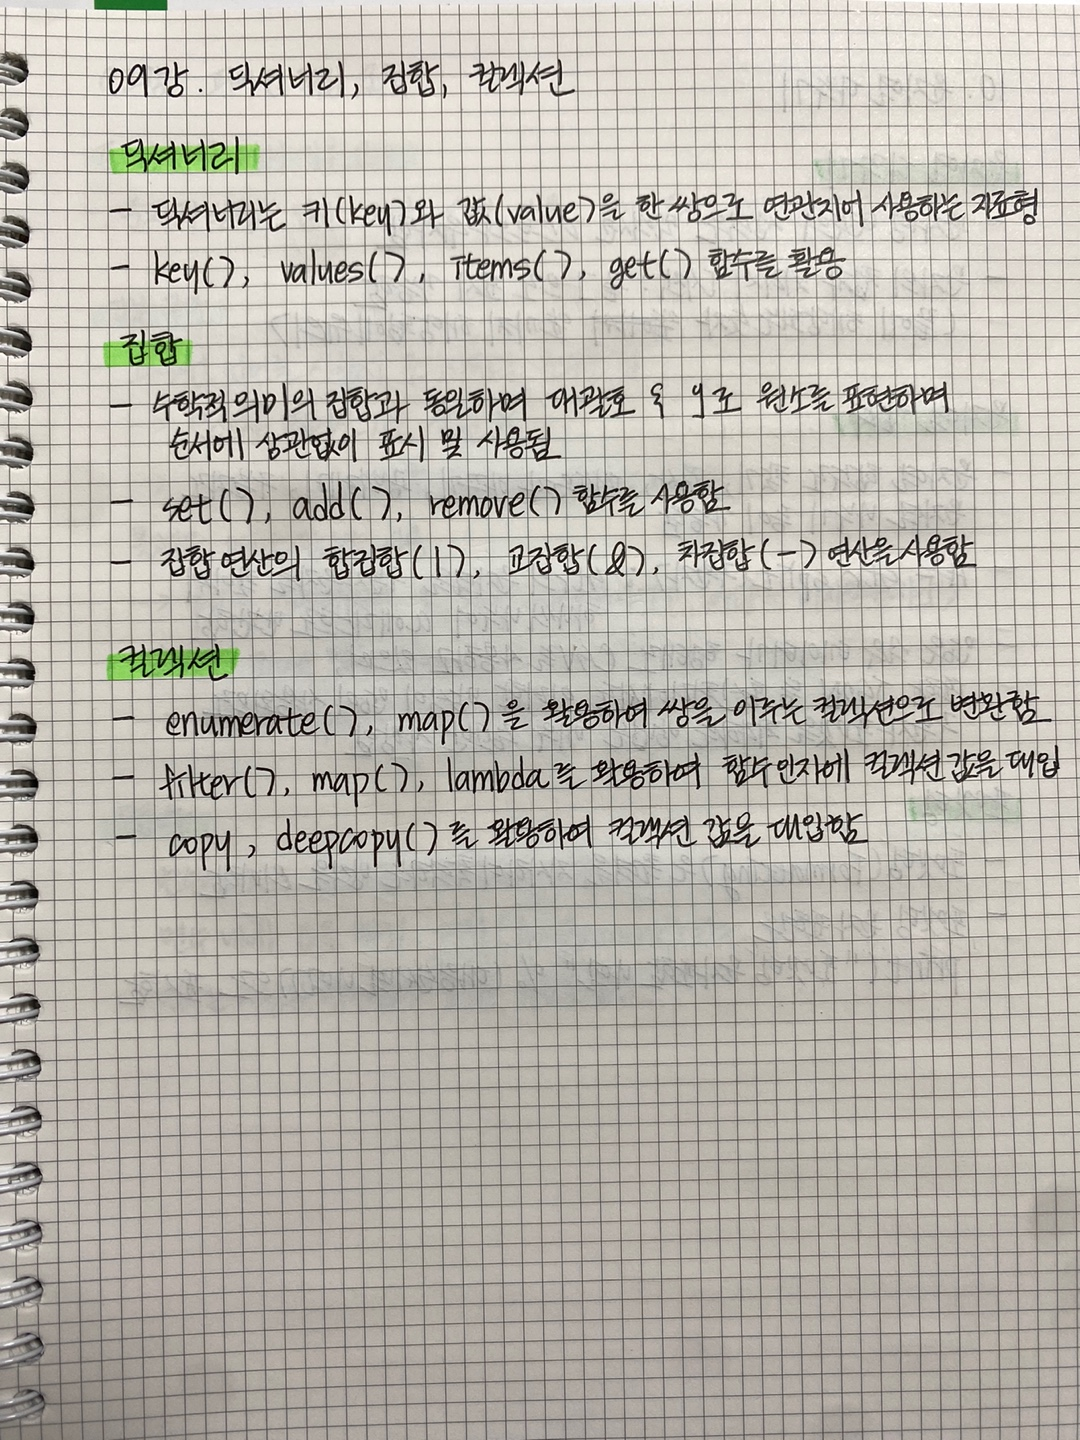 09강. 딕셔너리, 집합, 컬렉션
딕셔너리
- 딕셔너리는 키(key)와 값(value)을 한 쌍으로 연관지어 사용하는 자료형
- key(), values(), items(), get() 함수를 활용
집합
- 수학적 의미의 집합과 동일하며 대괄호 { }로 원소를 표현하며
순서에 상관없이 표시 및 사용됨
- set(), add(), remove() 함수를 사용함
- 집합 연산의 합집합(|), 교집합(&), 차집합(-) 연산을 사용함
컬렉션
- enumerate(), map()을 활용하여 쌍을 이루는 컬렉션으로 변환함
- filter(), map(), lambda를 활용하여 함수인자에 컬렉션 값을 대입
- copy, deepcopy()를 활용하여 컬렉션 값을 대입함